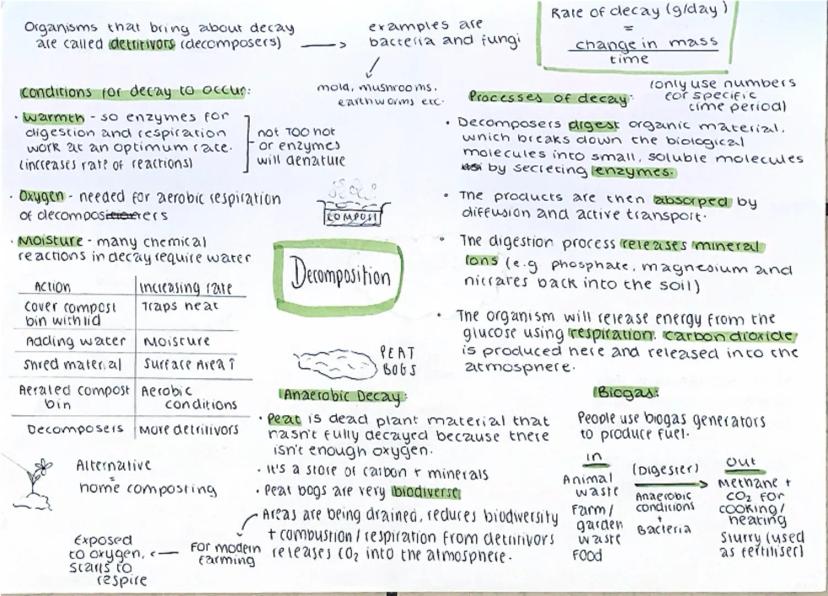 Organisms that bring about decay
are called detritivors (decomposers)
examples are
bacteria and fungi
mold, mushrooms,
earthworms etc.
Rate of decay (g/day)
=
change in mass
time
(only use numbers
for specific
time period)
Conditions for decay to occur:
• Warmth - so enzymes for
digestion and respiration
work at an optimum rate.
(increases rate of reactions)
not too hot
or enzymes
will denature
• Oxygen - needed for aerobic respiration
of decomposers
• Moisture - many chemical
reactions in decay require water
Action Increasing rate
Cover compost
bin with lid
Traps heat
Adding water Moisture
Shred material Surface Area ↑
Aerated compost
bin
Aerobic
conditions
Decomposers More detritivors
Alternative
=
home composting
COMPOST
Decomposition
PEAT
BOGS
Processes of decay:
• Decomposers digest organic material,
which breaks down the biological
molecules into small, soluble molecules
by secreting enzymes.
• The products are then absorped by
diffusion and active transport.
• The digestion process releases mineral
ions (e.g phosphate, magnesium and
nitrates back into the soil)
• The organism will release energy from the
glucose using respiration. Carbon dioxide
is produced here and released into the
atmosphere.
Anaerobic Decay:
• Peat is dead plant material that
hasn't fully decayed because there
isn't enough oxygen.
• It's a store of carbon + minerals
• Peat bogs are very biodiverse
Areas are being drained, reduces biodversity
+ combustion/respiration from detritivors
releases CO2 into the atmosphere.
For modern
farming
Exposed
to oxygen,
starts to
respire
Biogas:
People use biogas generators
to produce fuel.
In
Animal
waste
Farm/
garden
waste
Food
(Digester)
Anaerobic
conditions
+
Bacteria
Out
Methane +
CO2 for
cooking/
heating
Slurry (used
as fertiliser)